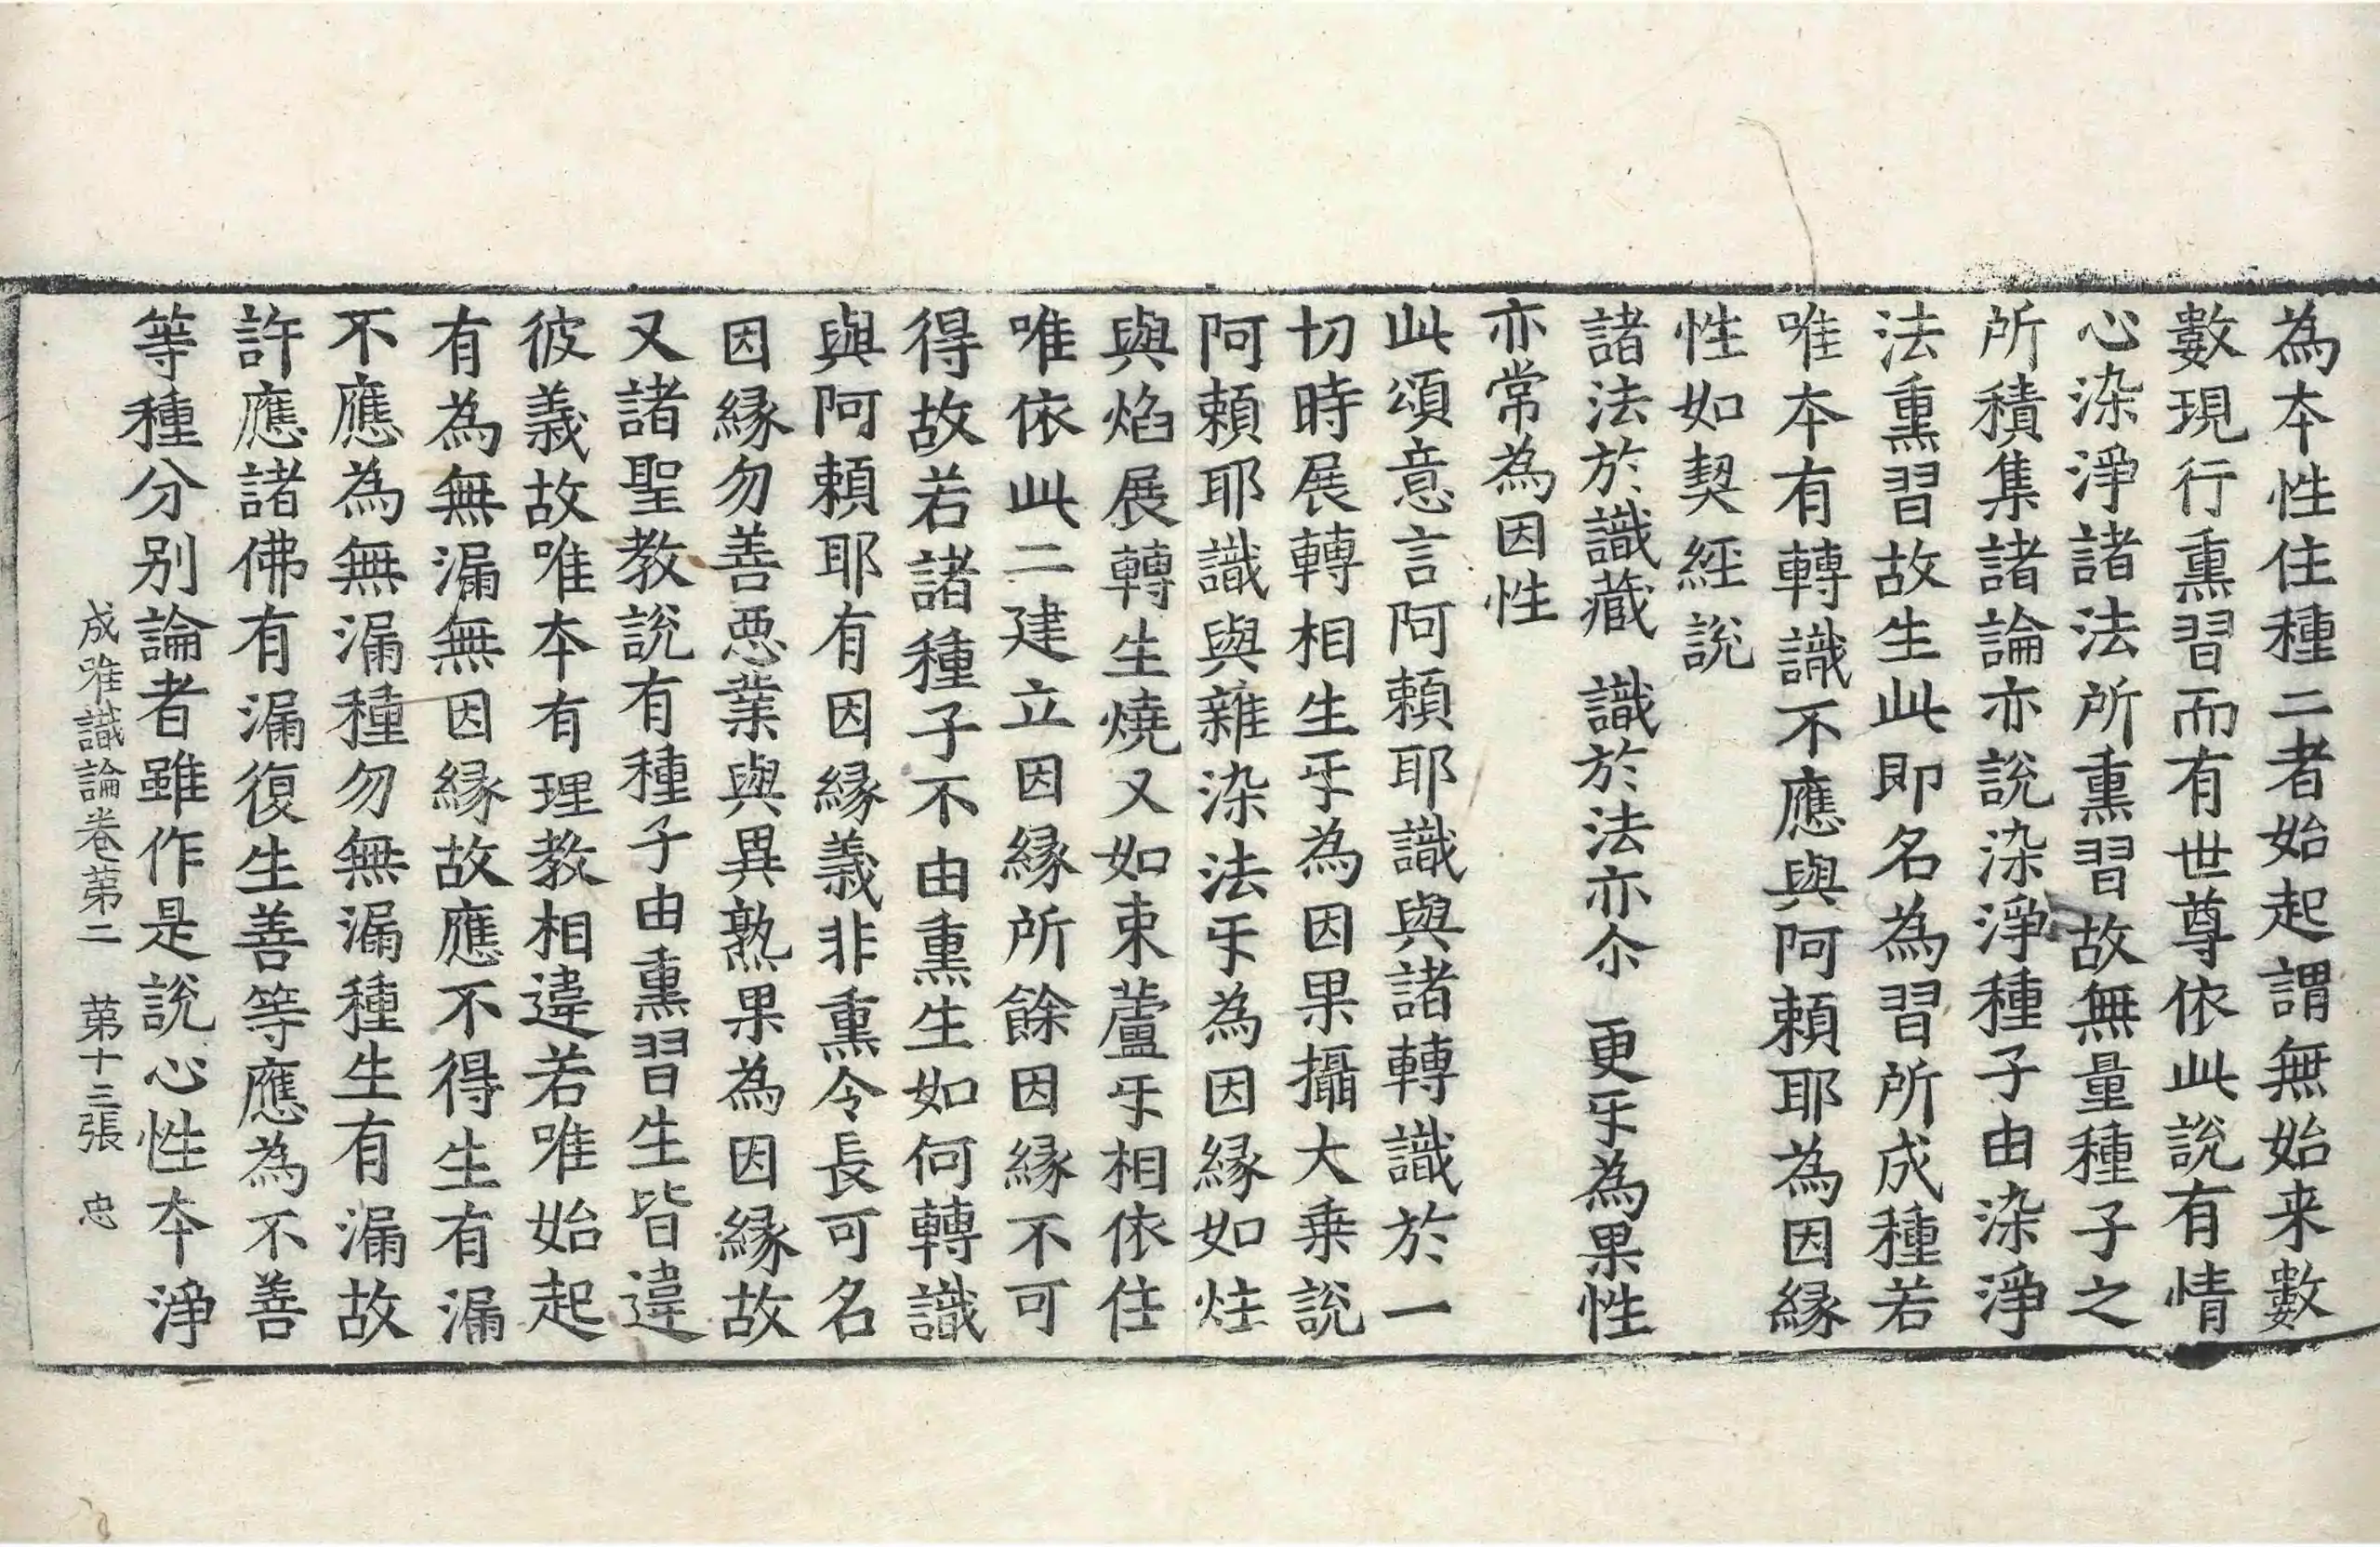 為本性住種二者始起謂無始来數
數現行熏習而有世尊依此說有情
心染淨諸法所熏習故無量種子之
所積集諸論亦說染淨種子由染淨
法熏習故生此即名為習所成種若
唯本有轉識不應與阿頼耶為因縁
性如契經說
諸法於識藏 識於法亦尒 更㸦為果性
亦常為因性
此頌意言阿頼耶識與諸轉識於一
切時展轉相生㸦為因果攝大乗說
阿頼耶識與雜染法㸦為因縁如炷
與焰展轉生燒又如束蘆㸦相依住
唯依此二建立因縁所餘因縁不可
得故若諸種子不由熏生如何轉識
與阿頼耶有因縁義非熏令長可名
因縁勿善悪業與異熟果為因縁故
又諸聖教說有種子由熏習生皆違
彼義故唯本有理教相違若唯始起
有為無漏無因縁故應不得生有漏
不應為無漏種勿無漏種生有漏故
許應諸佛有漏復生善等應為不善
等種分别論者雖作是說心性本淨
成唯識論卷苐二 苐十三張 忠